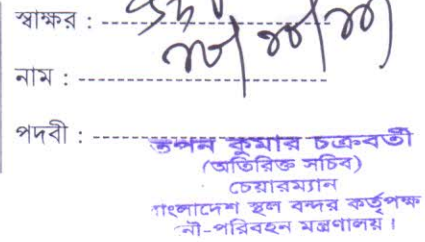 স্বাক্ষর :
নাম :
পদবী :
তপন কুমার চক্রবর্তী
(অতিরিক্ত সচিব)
চেয়ারম্যান
বাংলাদেশ স্থল বন্দর কর্তৃপক্ষ
নৌ-পরিবহন মন্ত্রণালয়।